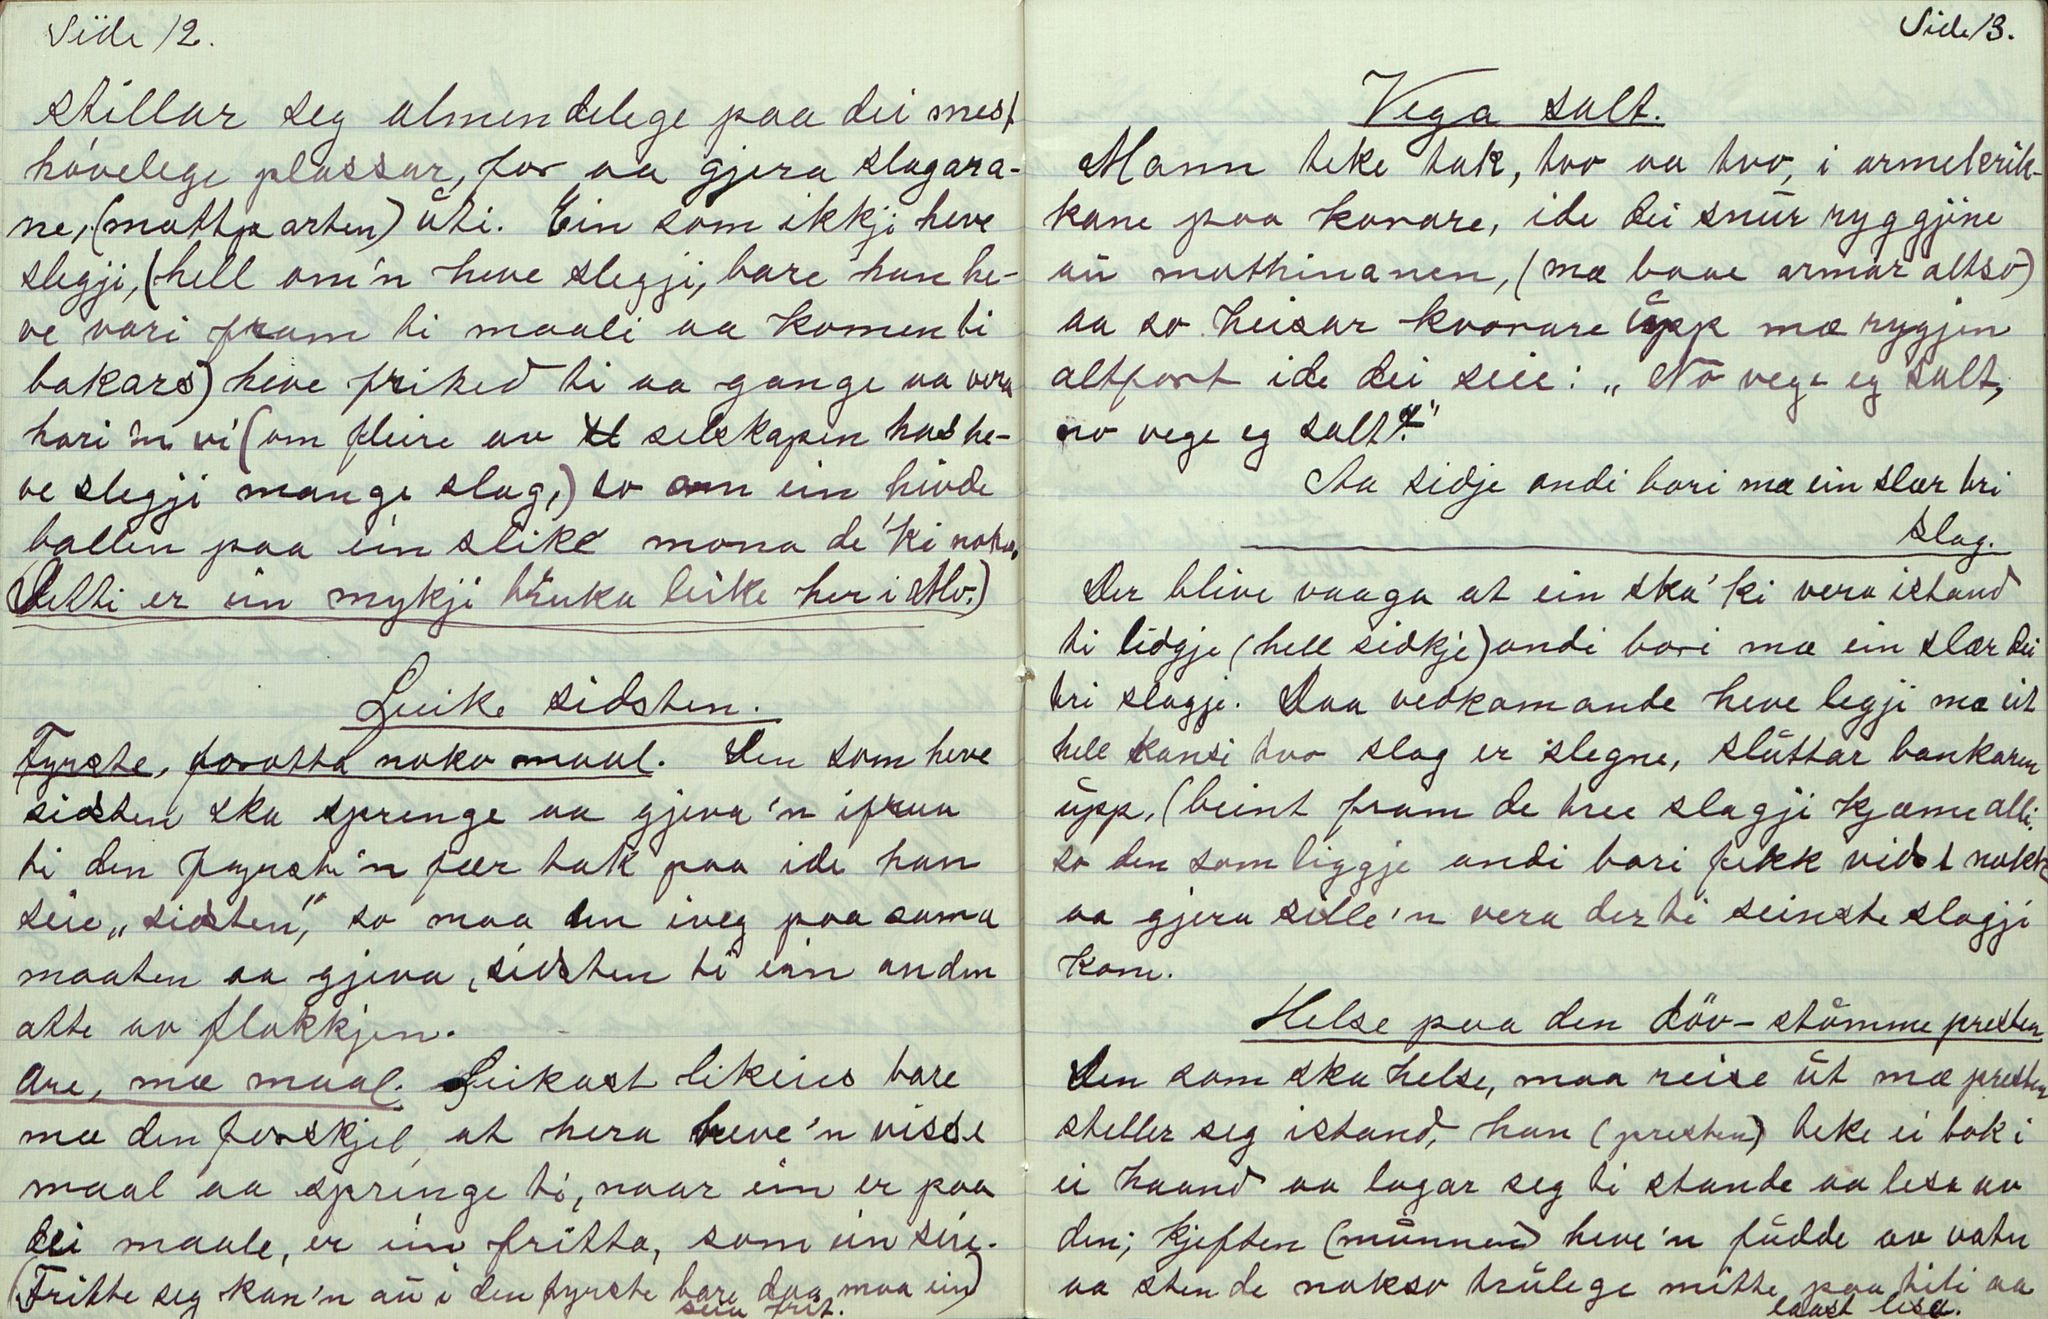 Side 12.
stillar seg almendelege paa dei mest
hóvelege plassar, for aa gjera slagara-
ne, (mottparten) ŭti. Ein som ikkji heve
slegji, (hell om'n heve slegji, bare han he-
ve vari fram ti maali aa komen ti
bakars) heve friked ti aa gange aa vera
hari'n vi (om fleire av selskapen has he-
ve slegji mange slag,) so om ein hivde
ballen paa ein slike mona de'ki noko,
(Detti er ein mykji brŭka leike her i Mo.)
Leike sidsten.
Fyrste, forotta noko maal. Den som heve
sidsten ska springe aa gjeva'n ifraa
ti den fyrste'n fær tak paa ide han
seie „sidsten", so maa en iveg paa sama
maaten aa gjeva, sidsten ti ein anden
atte av flokkjen.
Are, mæ maal. Leikast likeins bare
mæ den forskjel, at hera heve'n visse
maal aa springe ti, naar ein er paa
dei maale, er ein fritta, som ein seie.
(Fritte seg kan'n aŭ i den fyrste bare daa maa ein)
seia frit.
Side 13.
Vega salt.
Mann teke tak, tvo aa tvo, i armekrik-
kane paa kvorare, ide dei snŭr ryggjine
aŭ mothinanen, (mæ baae armar altso)
aa so heisar kvorare ŭpp mæ rygjen
altfort ide dei seie: „No vege eg salt,
no vege eg salt."
Aa sidje ondi bori mæ ein slær tri
slag.
Der blive vaaga at ein ska'ki vera istand
ti lidgje (hell sidkje) ondi bori mæ ein slær dei
tri slagje. Daa vedkomande heve legji mæ eit
hell kansi tvo slag er slegne, slŭttar bankaren
ŭpp, (beint fram de tree slagji kjæme alli,
so den som liggje ondi bori fekk vidst nokk
aa gjera sille'n vera der ti seinste slagji
kom.
Helse paa den döv-stŭmme presten
Den som ska helse, maa reise ŭt mæ presten
steller seg istand, han (presten) teke ei bok i
ei haand aa lagar seg ti stande aa lesa av
den; kjeften (mŭnnen) heve'n fŭdde av vatn
aa stende nokso trŭlege mitte paa titi aa
laast lesa.